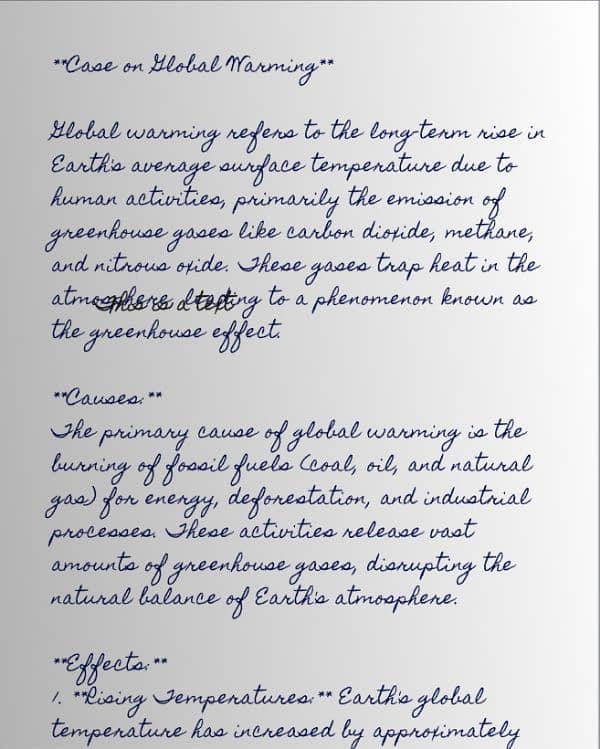 **Case on Global Warming**
Global warming refers to the long-term rise in
Earth's average surface temperature due to
human activities, primarily the emission of
greenhouse gases like carbon dioxide, methane,
and nitrous oxide. These gases trap heat in the
atmosphere, leading to a phenomenon known as
This is a text
the greenhouse effect.
**Causes:**
The primary cause of global warming is the
burning of fossil fuels (coal, oil, and natural
gas) for energy, deforestation, and industrial
processes. These activities release vast
amounts of greenhouse gases, disrupting the
natural balance of Earth's atmosphere.
**Effects:**
1. **Rising Temperatures:** Earth's global
temperature has increased by approximately